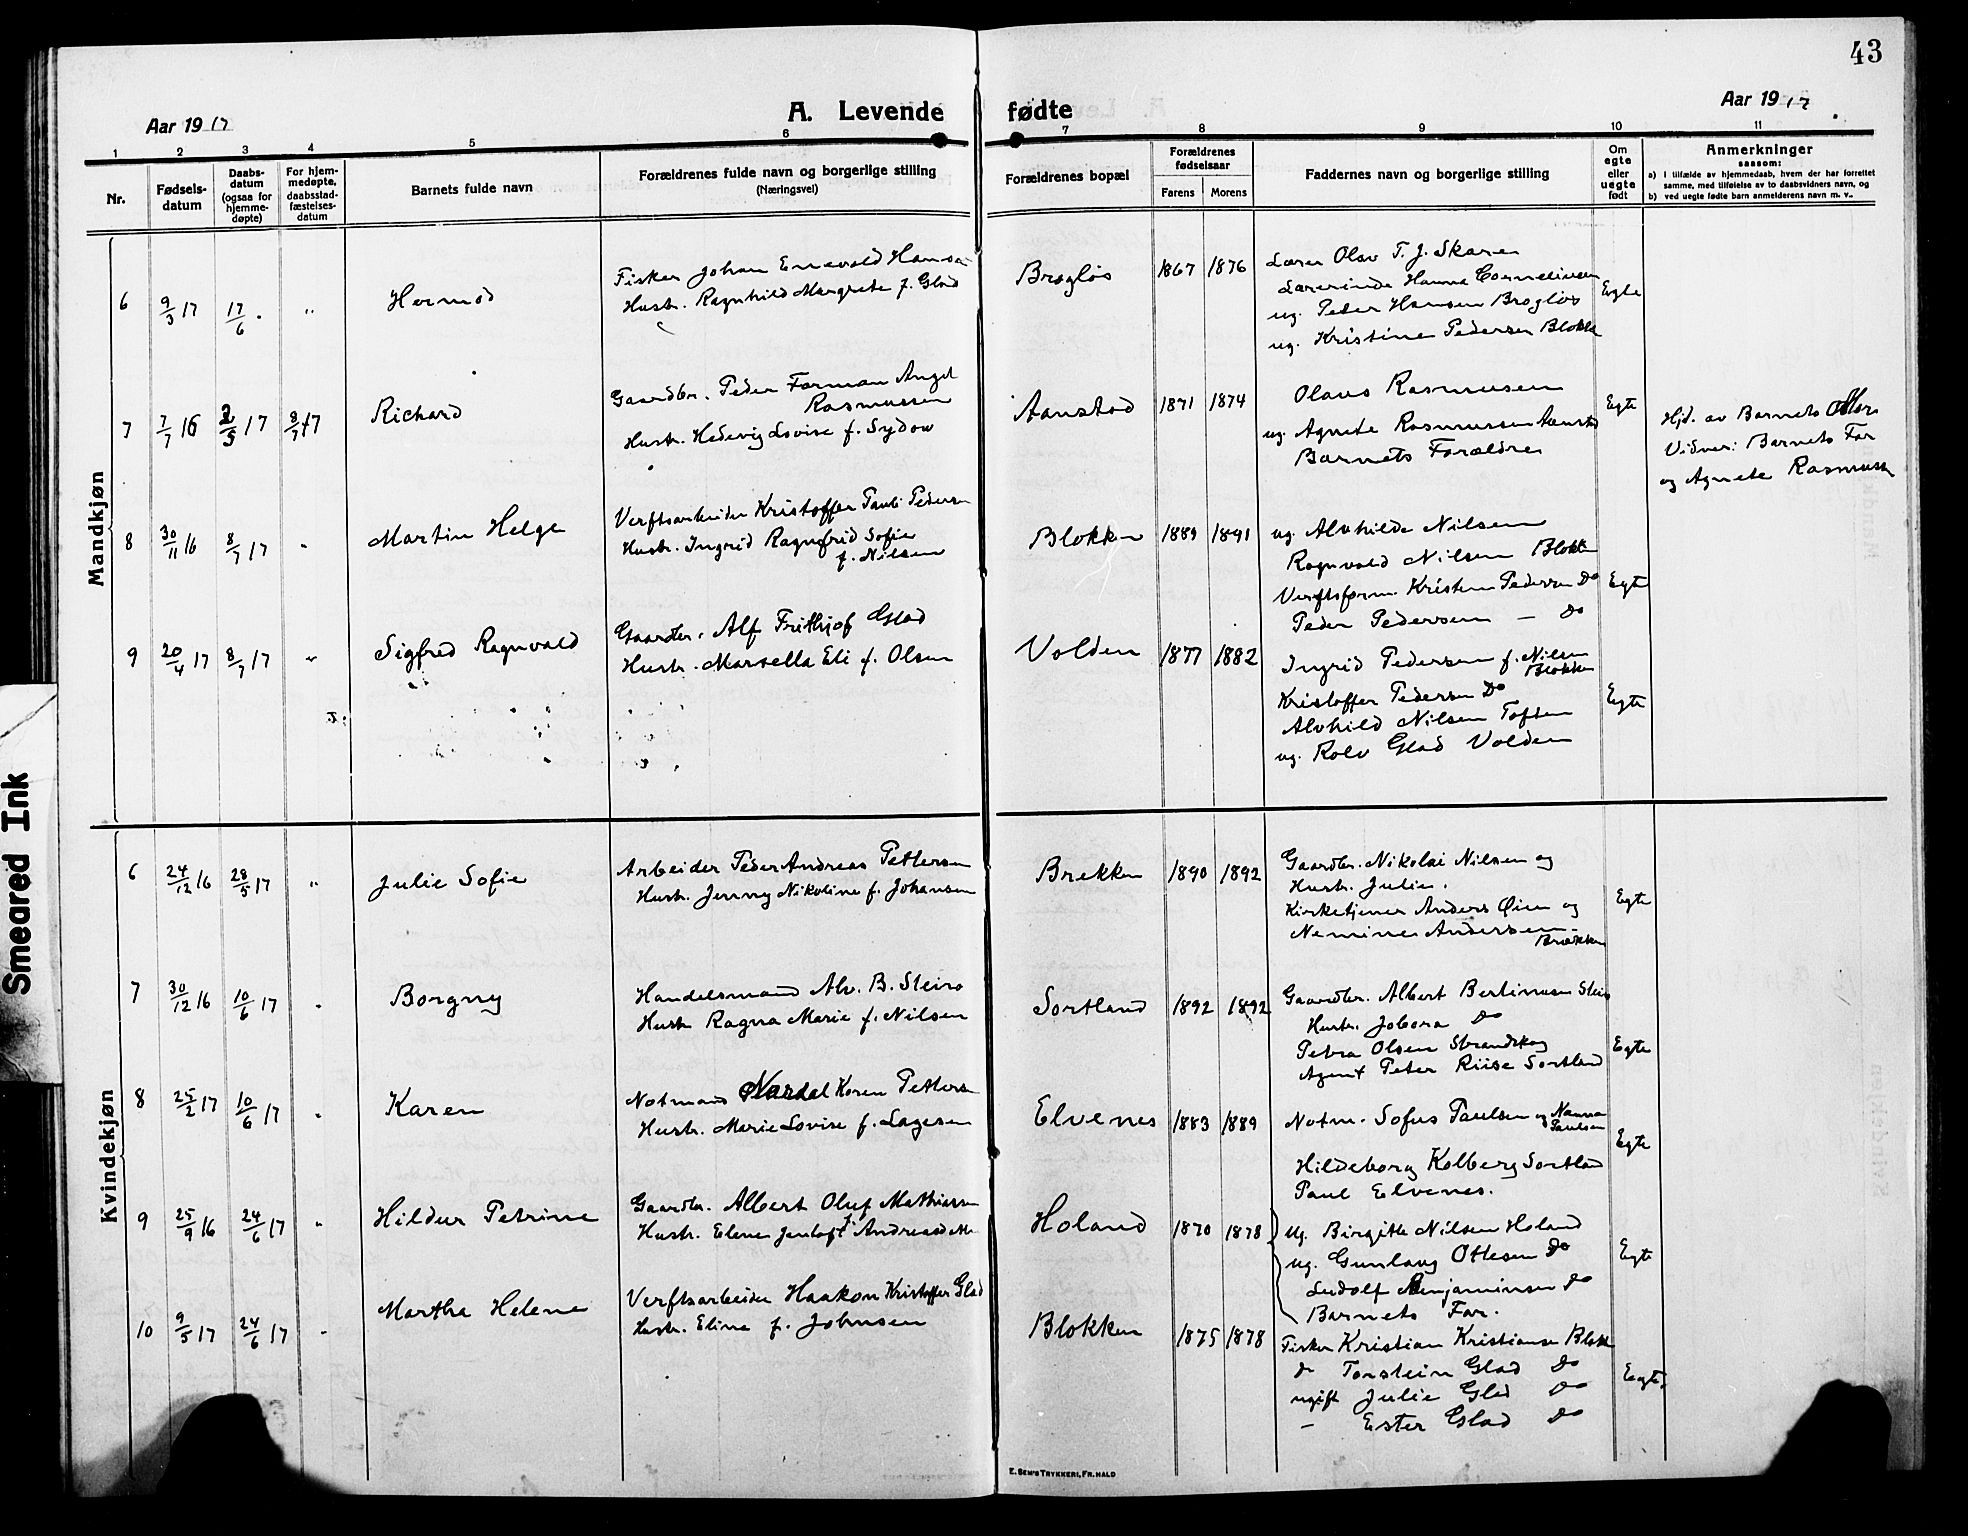 43
Aar 1917
A. Levende fødte
Aar 1917
1 2 3 4 5 6 7 8 9 10 11
Nr.
Fødsels-
datum
Daabs-
datum
(ogsaa for
hjemme-
døpte)
For hjem-
medøpte,
daabsstad-
fæstelses-
datum
Barnets fulde navn
Forældrenes fulde navn og borgerlige stilling
(Næringsvei)
Forældrenes bopæl
Forældrenes
fødselsaar
Farens Morens
Faddernes navn og borgerlige stilling
Om
egte
eller
uegte
født
Anmerkninger
saasom:
a) I tilfælde av hjemmedaab, hvem der har forrettet
samme, med tilføielse av to daabsvidners navn, og
b) ved uegte fødte barn anmelderens navn m. v..
Mandkjøn
6 9/3 17 17/6 . " Hermod
Fisker Johan Enevald Hansen
Hustr. Ragnhild Margrete f. Glad
Brogløs 1867 1876
Lærer Olav T. J. Skaren
Lærerinde Hanna Corneliusen
ug. Peder Hansen Brogløs
ug. Kristine Pedersen Blokk
Egte
7 7/7 16 2/5 17 8/7 17 Richard
Gaardbr. Peder Forman Angel
Rasmussen
Hustr. Hedevig Lovise f. Sydow
Aanstad 1871 1874
Olaus Rasmussen
ug. Agnete Rasmussen Aanstad
Barnets Forældre
Egte
Hjd. av Barnets Mor
Vidner: Barnets Far
og Agnete Rasmussen
8 30/11 16 8/7 17 " Martin Helge
Verftsarbeider Kristoffer Pauli Pedersen
Hustr. Ingrid Ragnfrid Sofie
f. Nilsen
Blokken 1889 1891
ug. Alvhilde Nilsen
Ragnvald Nilsen Blokken
Verftsform. Kristen Pedersen Do
Peder Pedersen — Do
Egte
9 20/4 17 8/7 17 " Sigfred Ragnvald
Gaardbr. Alf Frithjof Glad
Hustr. Marsella Eli f. Olsen
Volden 1877 1882
Ingrid Pedersen f. Nilsen
Blokken
Kristoffer Pedersen Do
Alvhild Nilsen Toften
ug. Rolv Glad Volden
Egte
Kvindekjøn
6 24/12 16 28/5 17 " Julie Sofie
Arbeider Peder Andreas Pettersen
Hustr. Jenny Nikoline f. Johansen
Brekken 1890 1892
Gaardbr. Nikolai Nilsen og
Hustr. Julie.
Kirketjener Anders Øien og
Nemine Andersen -
Brækken
Egte
7 30/12 16 10/6 17 " Borgny
Handelsmand Alv. B. Steiro
Hustr Ragna Marie f. Nilsen
Sortland 1892 1892
Gaardbr. Albert Bertinusen Steiro
Hustr. Jobora Do
Petra Olsen Strandskog
Agent Peter Riise Sortland
Egte
8 25/2 17 10/6 17 " Karen
Notmand Nardal Koren Petters
Hustr. Marie Lovise f. Lagesen
Elvenes 1883 1889
Notm. Sofus Paulsen og Nanna
Paulsen
Hildeborg Kolberg Sortland
Paul Elvenes.
Egte
9 25/9 16 24/6 17 " Hildur Petrine
Gaardbr. Albert Oluf Mathiassen
Hustr. Elene Jentoft f. Andreasd
Holand 1870 1878
ug. Birgitte Nilsen Holand
ug. Gunlaug Ottesen Do
Ludolf Benjaminsen Do
Barnets Far.
Egte
10 9/5 17 24/6 17 " Martha Helene
Verftsarbeider Haakon Kristoffer Glad
Hustr. Eline f. Johnsen
Blokken 1875 1878
Fisker Kristian Kristiansen Blokk
do Torstein Glad Do
ugift Julie Glad Do
— Ester Glad Do
Egte.
Smeared Ink
E. SEM'S TRYKKERI, FR.HALD